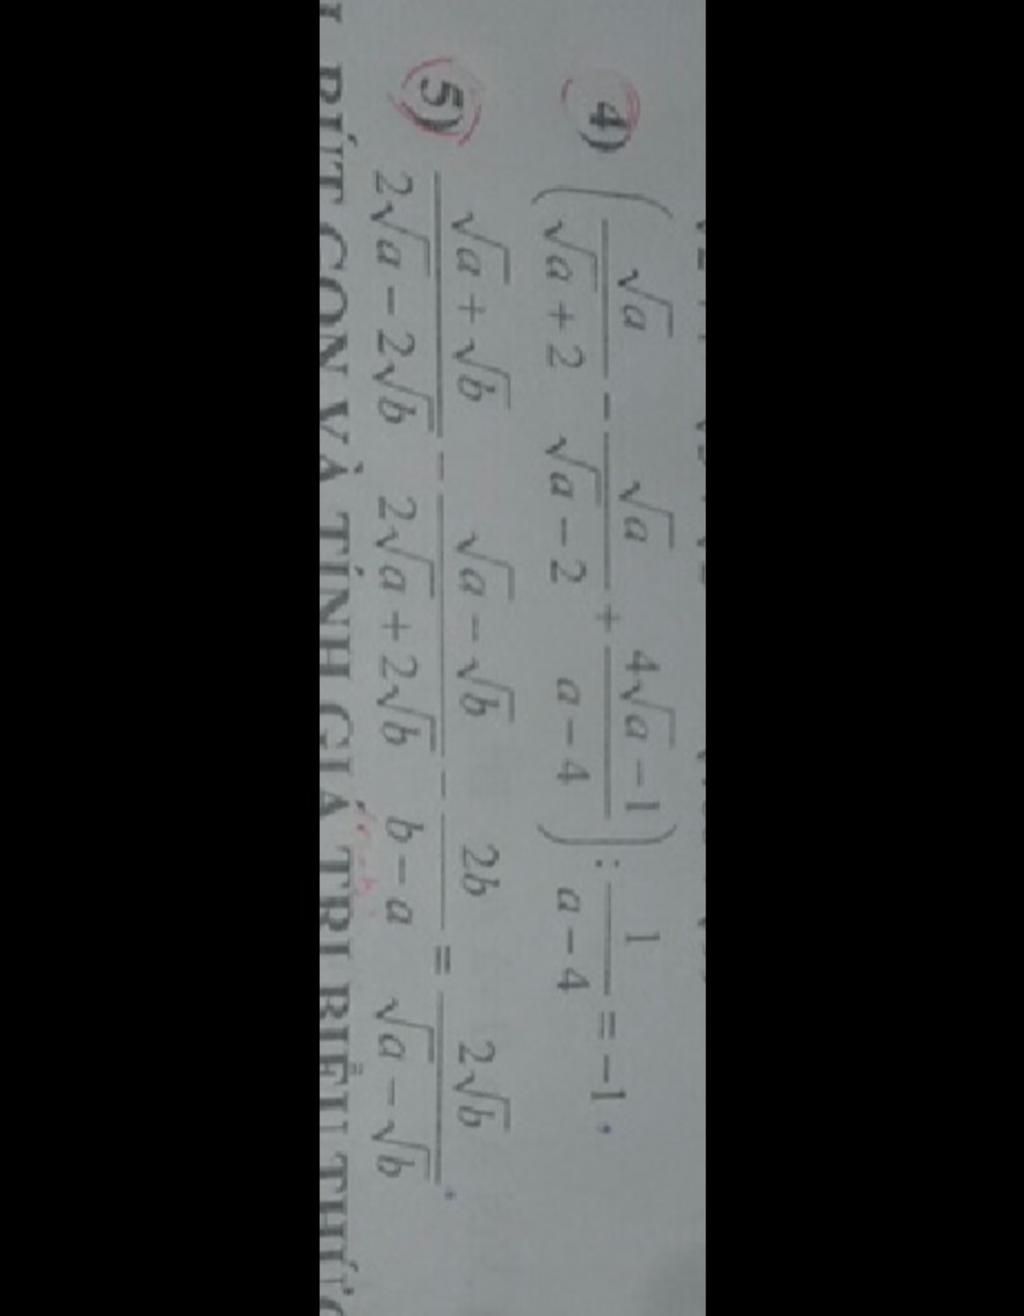 4) (√a/(√a + 2) - √a/(√a - 2) + (4√a - 1)/(a - 4)) : 1/(a - 4) = -1.
5) (√a + √b)/(2√a - 2√b) - (√a - √b)/(2√a + 2√b) - 2b/(b - a) = 2√b/(√a - √b).
RÚT GỌN VÀ TÍNH GIÁ TRỊ BIỂU THỨC